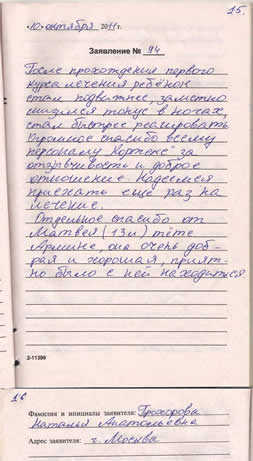 15.
«10» октября 2011 г.
Заявление № 94
После прохождения первого
курса лечения ребёнок
стал подвижнее, заметно
снизился тонус в ногах,
стал быстрее реагировать.
Огромное спасибо всему
персоналу за
отзывчивость и доброе
отношение. Надеемся
приехать ещё раз на
лечение.
Отдельное спасибо от
Матвея (13м) тёте
Армине, она очень доб-
рая и хорошая, прият-
но было с ней находиться
2-11399
16
Фамилия и инициалы заявителя: Прохорова
Наталья Анатольевна
Адрес заявителя: г. Москва